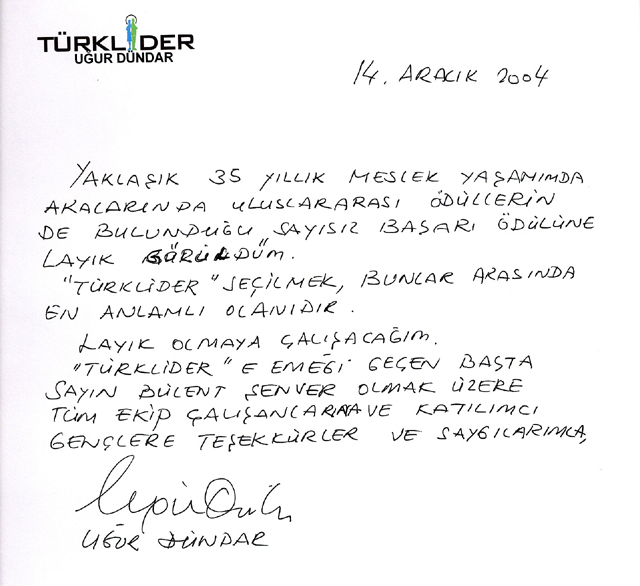 TÜRKLİDER
UĞUR DÜNDAR
14. ARALIK 2004
YAKLAŞIK 35 YILLIK MESLEK YAŞAMIMDA
ARALARINDA ULUSLARARASI ÖDÜLLERİN
DE BULUNDUĞU SAYISIZ BAŞARI ÖDÜLÜNE
LAYIK GÖRÜLDÜM.
"TÜRKLİDER" SEÇİLMEK, BUNLAR ARASINDA
EN ANLAMLI OLANIDIR.
LAYIK OLMAYA ÇALIŞACAĞIM.
"TÜRKLİDER" E EMEĞİ GEÇEN BAŞTA
SAYIN BÜLENT ŞENVER OLMAK ÜZERE
TÜM EKİP ÇALIŞANLARINA VE KATILIMCI
GENÇLERE TEŞEKKÜRLER VE SAYGILARIMLA,
UĞUR DÜNDAR